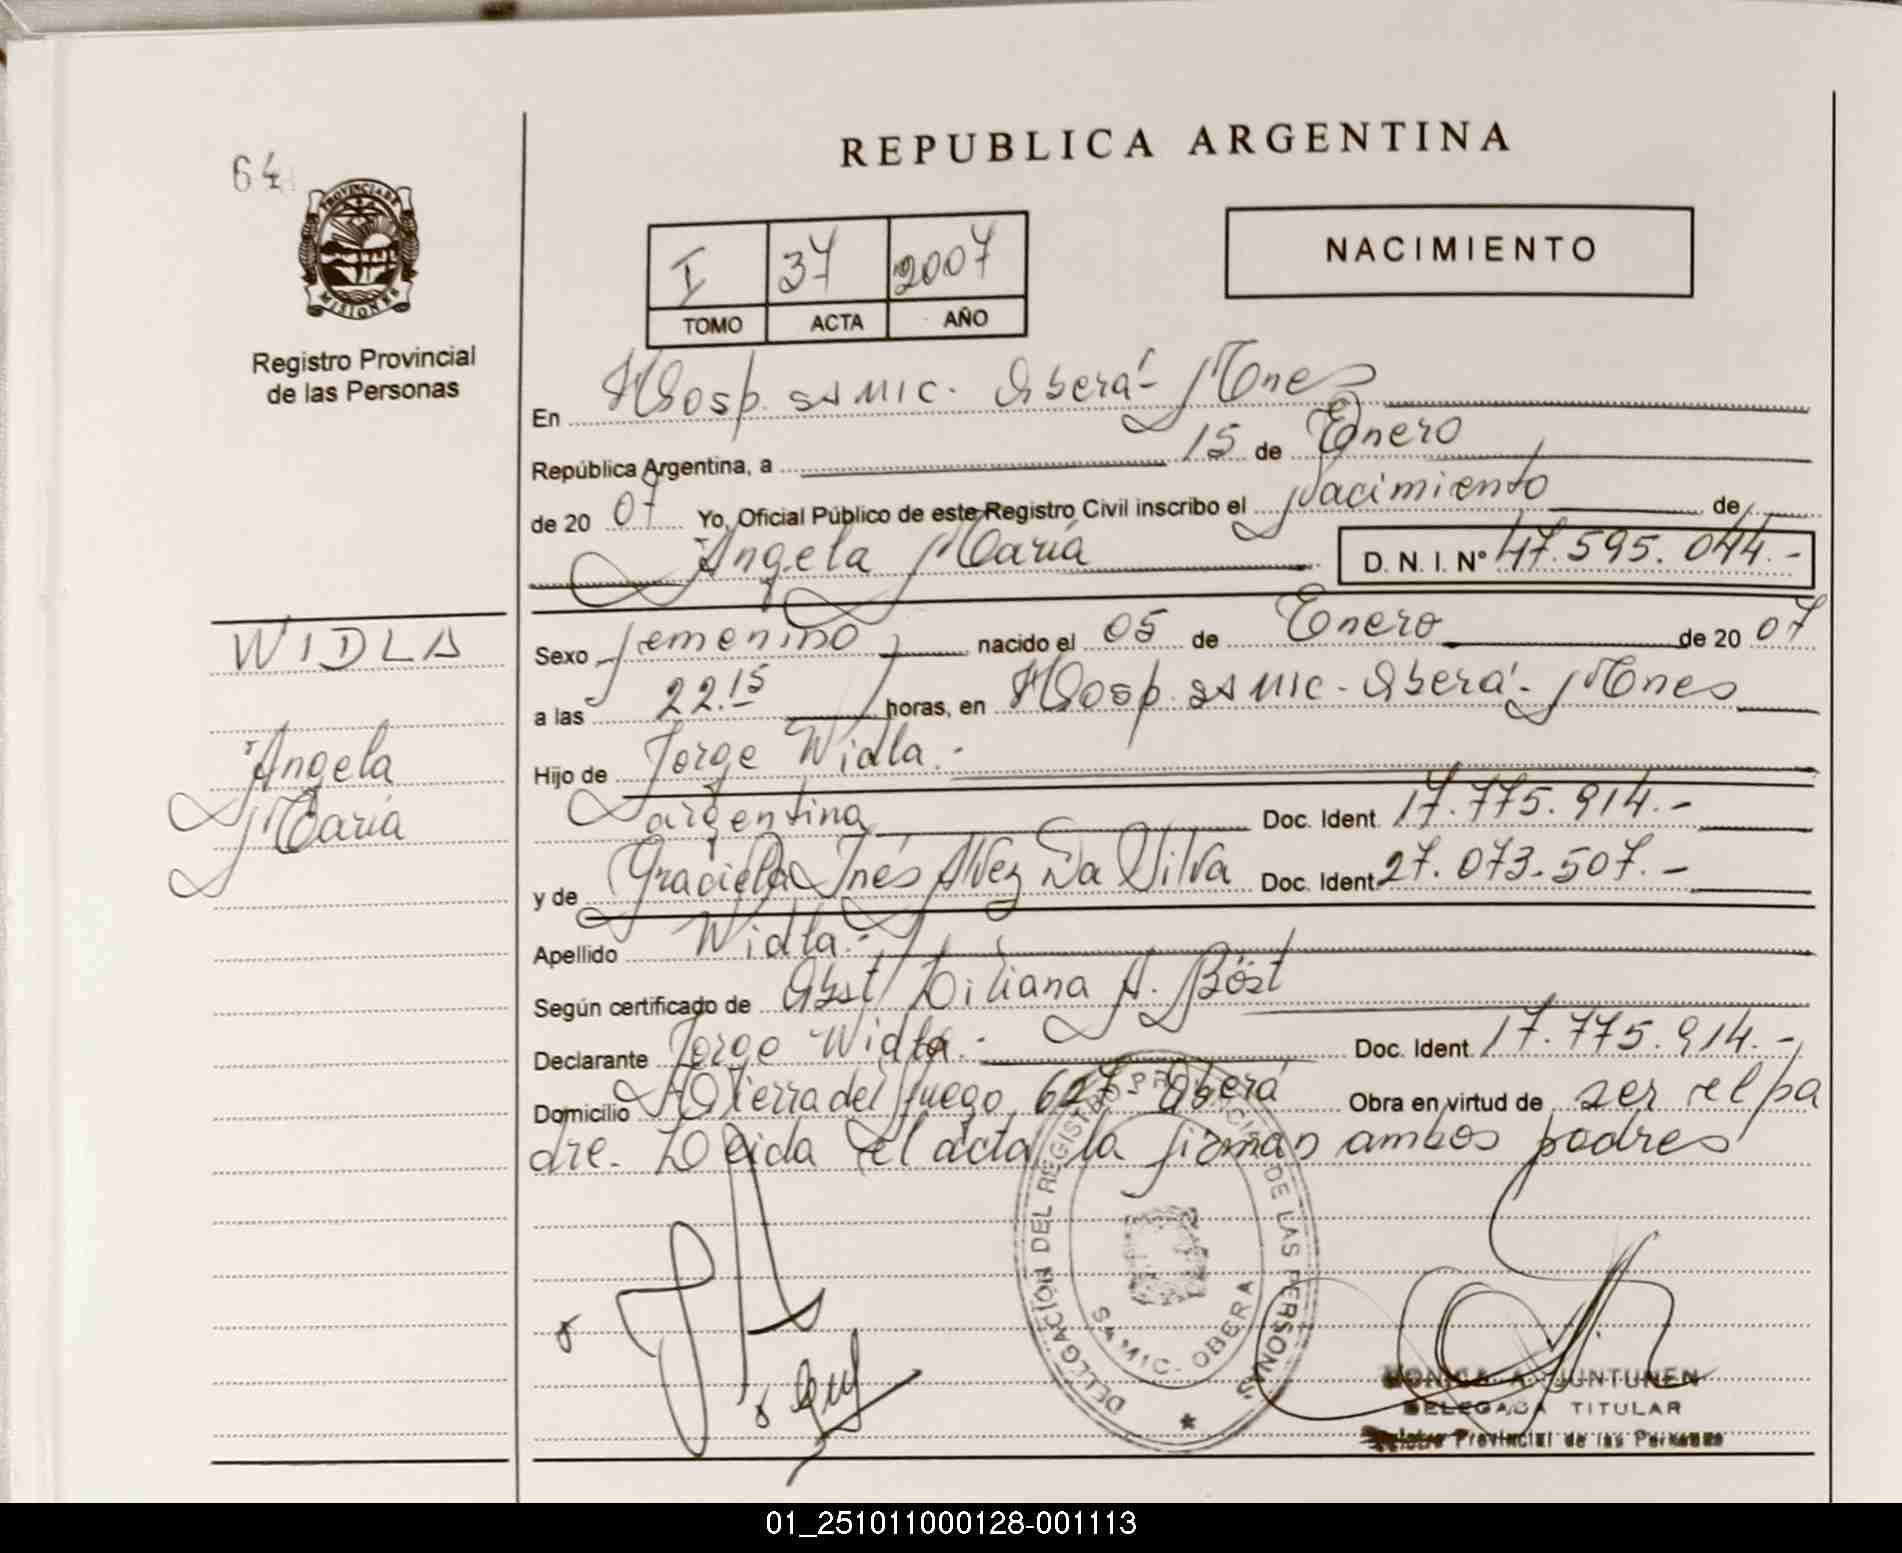 64
REPUBLICA ARGENTINA
PROVINCIA DE MISIONES
Registro Provincial
de las Personas
I 37 2007
TOMO ACTA AÑO
NACIMIENTO
En Hosp. SAMIC. Oberá - Mnes
República Argentina, a 15 de Enero
de 20 07 Yo, Oficial Público de este Registro Civil inscribo el Nacimiento de
Angela María D. N. I. Nº 47.595.044.-
WIDLA
Angela
María
Sexo femenino nacido el 05 de Enero de 20 07
a las 22.15 horas, en Hosp. SAMIC - Oberá - Mnes
Hijo de Jorge Widla.-
argentina Doc. Ident. 17.775.914.-
y de Graciela Inés Alvez Da Silva Doc. Ident. 27.073.507.-
Apellido Widla.-
Según certificado de Obst Liliana A. Böst
Declarante Jorge Widla.- Doc. Ident 17.775.914.-
Domicilio Tierra del fuego 627 Oberá Obra en virtud de ser el pa
dre. Leida el acta la firman ambos padres
DELEGACIÓN DEL REGISTRO PROVINCIAL DE LAS PERSONAS
SAMIC - OBERA
MONICA A. JUNTUNEN
DELEGADA TITULAR
Registro Provincial de las Personas
01_251011000128-001113